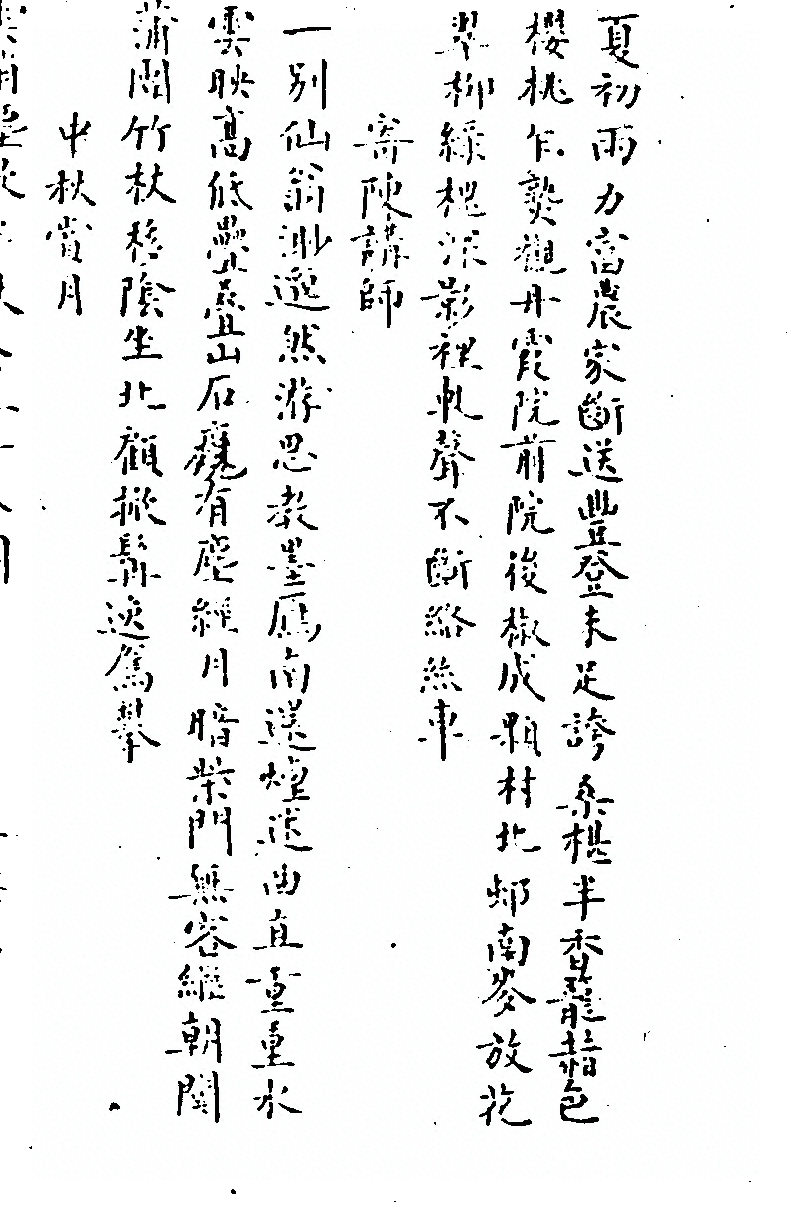 夏初雨力富農家斷送豐登未足誇桑椹半香籠赭色
櫻桃乍熟襯丹霞院前院後椒成顆村北邨南麥放花
翠柳綠槐深影裡軋聲不斷絡絲車
寄陳講師
一別仙翁渺邈然游思教墨雁南還煙迷曲直重重水
雲映高低疊疊山石甕有塵經月暗柴門無客繼朝関
蒲團竹杖移陰坐北顧掀髯逸駕攀
中秋賞月